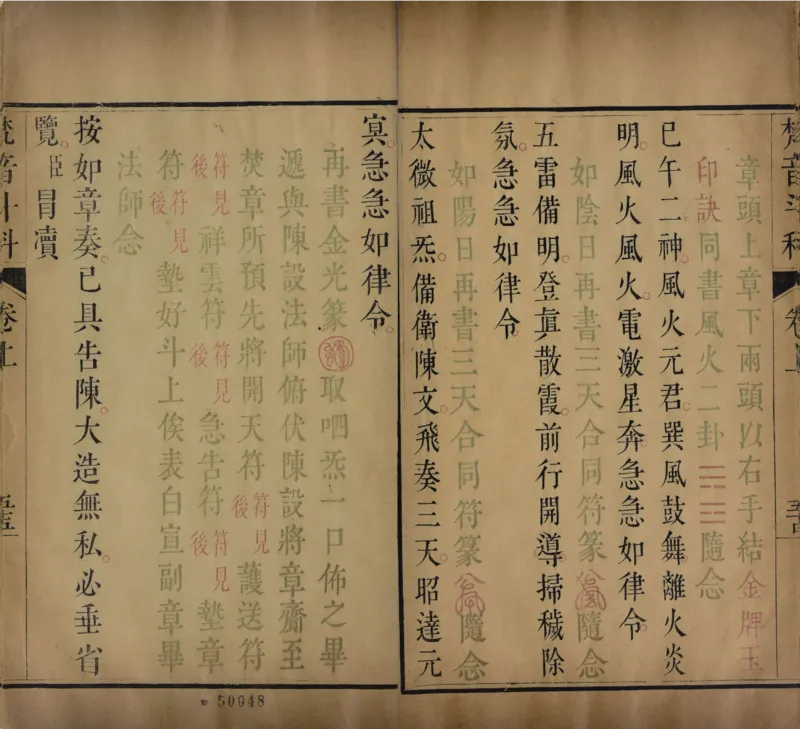 梵音斗科 卷上
章頭上章下兩頭以右手結金牌玉
印訣同書風火二卦隨念
巳午二神。風火元君。巽風鼓舞。離火炎
明。風火風火。電激星奔。急急如律令。
如陰日再書三天合同符篆隨念
五雷備明。登眞散霞。前行開導。掃穢除
氛。急急如律令
如陽日再書三天合同符篆隨念
太微祖炁。備衛陳文。飛奏三天。昭達元
冥。急急如律令。
再書金光篆取呬炁一口佈之畢
遞與陳設法師俯伏陳設將章齎至
焚章所預先將開天符符見後護送符
符見後祥雲符符見後急告符符見後墊章
符符見後墊好斗上俟表白宣副章畢
法師念
按如章奏。已具告陳。大造無私。必垂省
覽。臣冒瀆
梵音斗科 卷上
50948